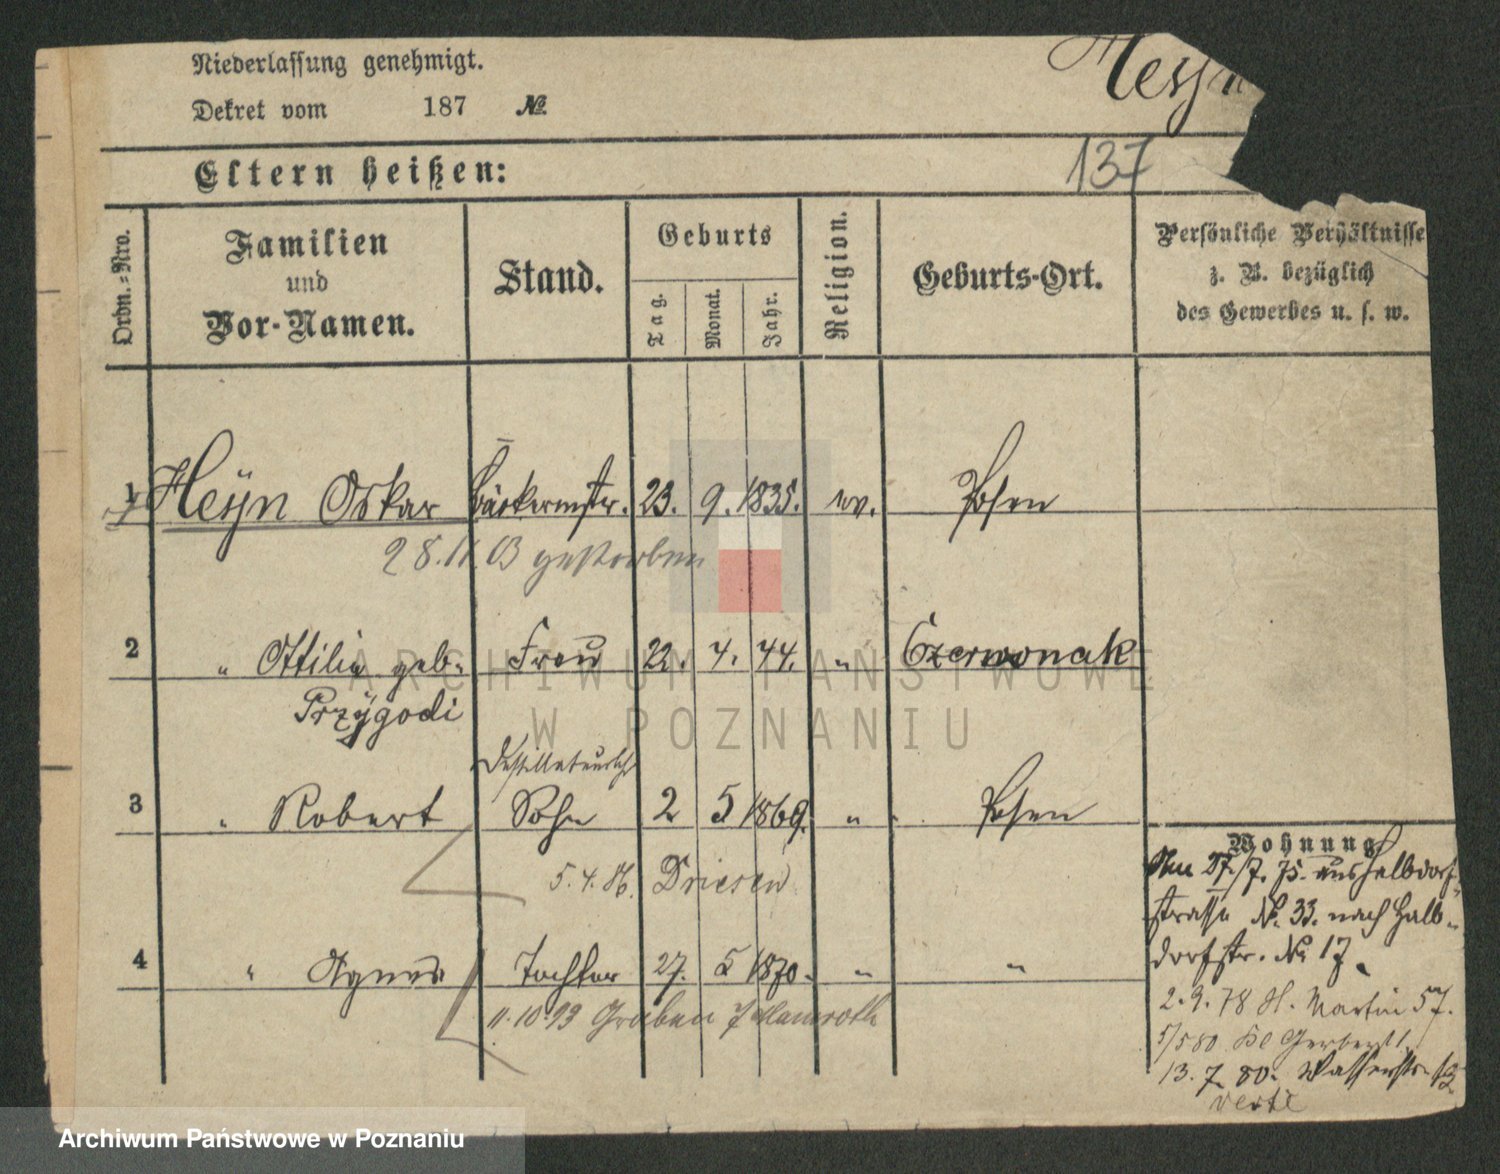 Niederlassung genehmigt.
Heyn
Dekret vom 187 №
Eltern heißen:
137
Ordn.=Nro.
Familien
und
Vor-Namen.
Stand.
Geburts
Tag.
Monat.
Jahr.
Religion.
Geburts-Ort.
Persönliche Verhältnisse
z. B. bezüglich
des Gewerbes u. s. w.
1 Heyn Oskar Bäckermstr. 23. 9. 1835. ev. Posen
28.11.03 gestorben
2 " Ottilie geb. Frau 22. 4. 44. " Czerwonak
Przygodi
3 " Robert Sohn 2 5 1869. " Posen
5.4.86. Driesen
4 " Agnes Tochter 27. 5 1870. " "
11.10.93 Graben 7
Wohnung
Am 27./7. 75. aus Halbdorf-
strasse No. 33. nach Halb-
dorfstr. No 17.
2.9.78 St. Martin 57.
5/5 80 Kl Gerberst
13.7.80. Wasserstr.
verte
ARCHIWUM PAŃSTWOWE
W POZNANIU
Archiwum Państwowe w Poznaniu